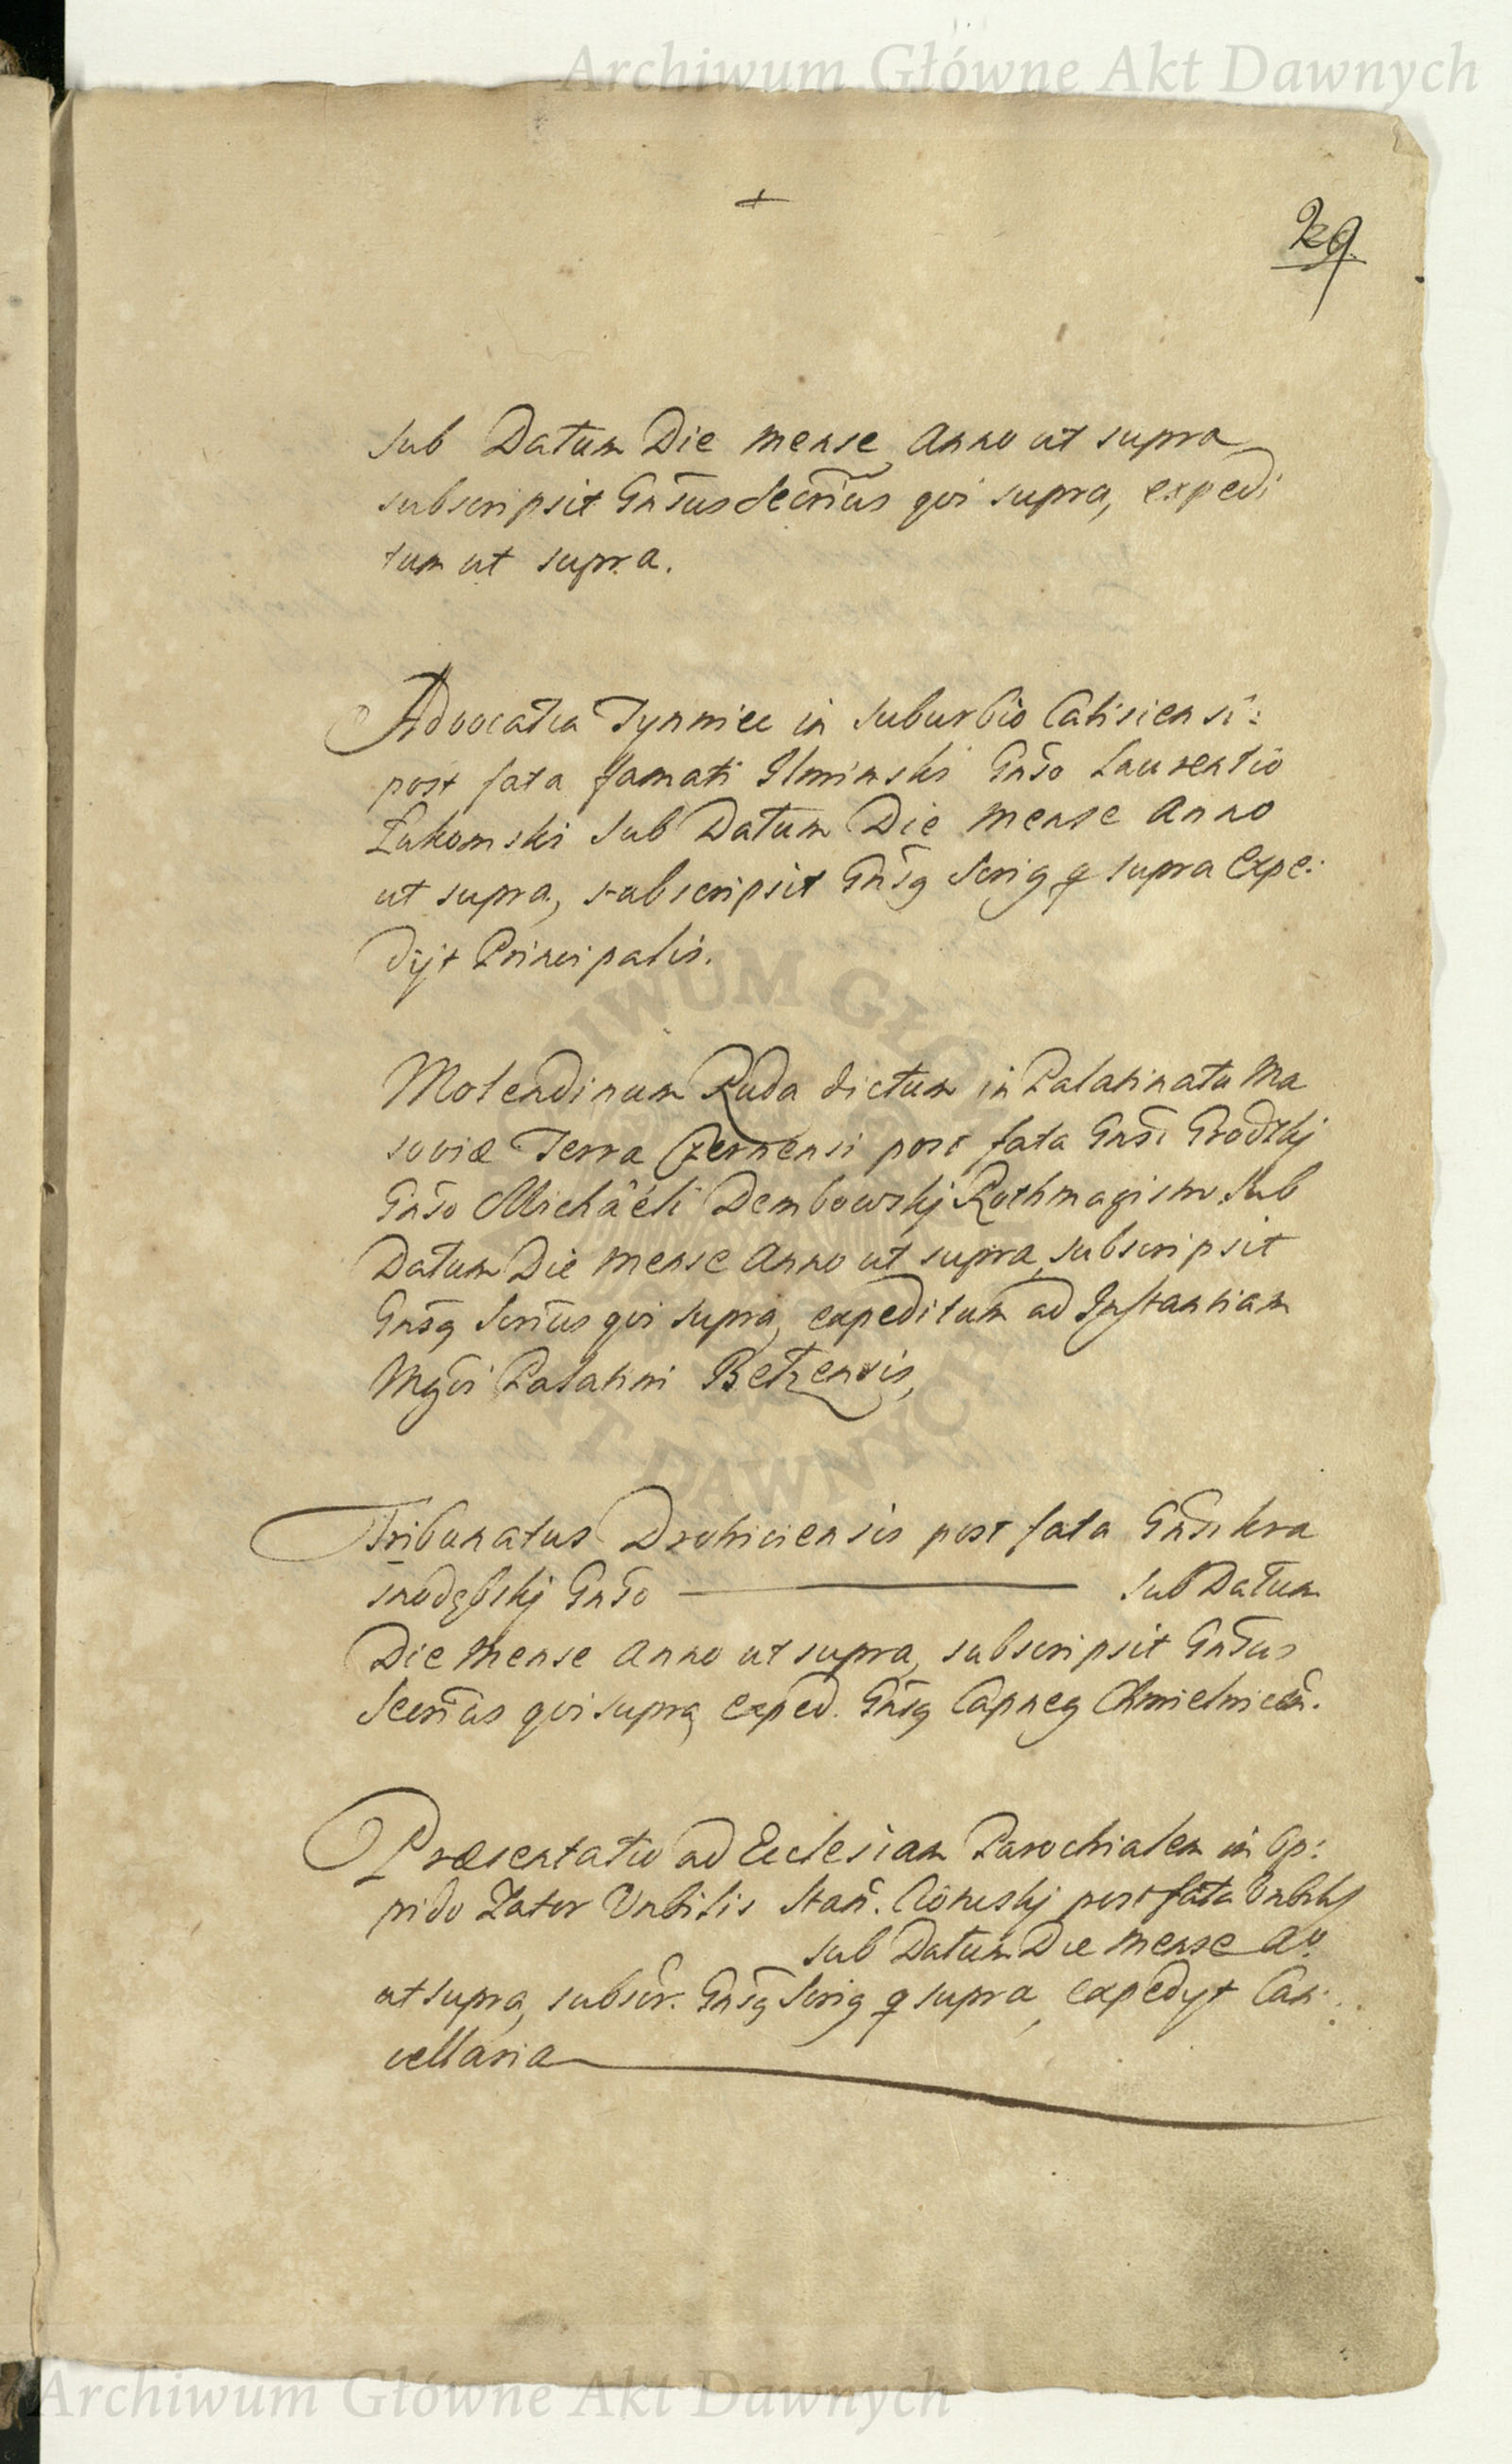 Archiwum Główne Akt Dawnych
29.
Sub Datum Die Mense Anno ut supra
subscripsit Gnsus Secrius qui supra, expedi
tum ut supra.
Advocatia Tynniec in Suburbio Calisiensi:
post fata famati Ilminski Gnso Laurentio
Łukomski Sub Datum Die Mense Anno
ut supra, subscripsit Gnsq supra Expe:
dijt Principalis.
Molendinum Ruda dictum in Palatinatu Ma
soviæ Terra Czernensi post fata Gnsi Grodzkj
Gnso Michäeli Dembowskj Rothmagistro Sub
Datum Die Mense Anno ut supra, subscripsit
Gnsq Secrius qui supra, expeditum ad Instantiam
Mgci Palatini Betzensis,
Tribunatus Drohiciensis post fata Gnsi Kra
snodębskj Gnso Sub Datum
Die Mense Anno ut supra, subscripsit Gnsus
Secrius qui supra, exped. Gnsq Capneq Chmielnicen.
Præsentatio ad Ecclesiam Parochialem in Op:
pido Zator Vnbilis Stan. post fata Vnbilis
Sub Datum Die Mense Ao
ut supra, subscr. Gnsq q supra, expedyt Can:
cellaria
ARCHIWUM GŁÓWNE AKT DAWNYCH
Archiwum Główne Akt Dawnych